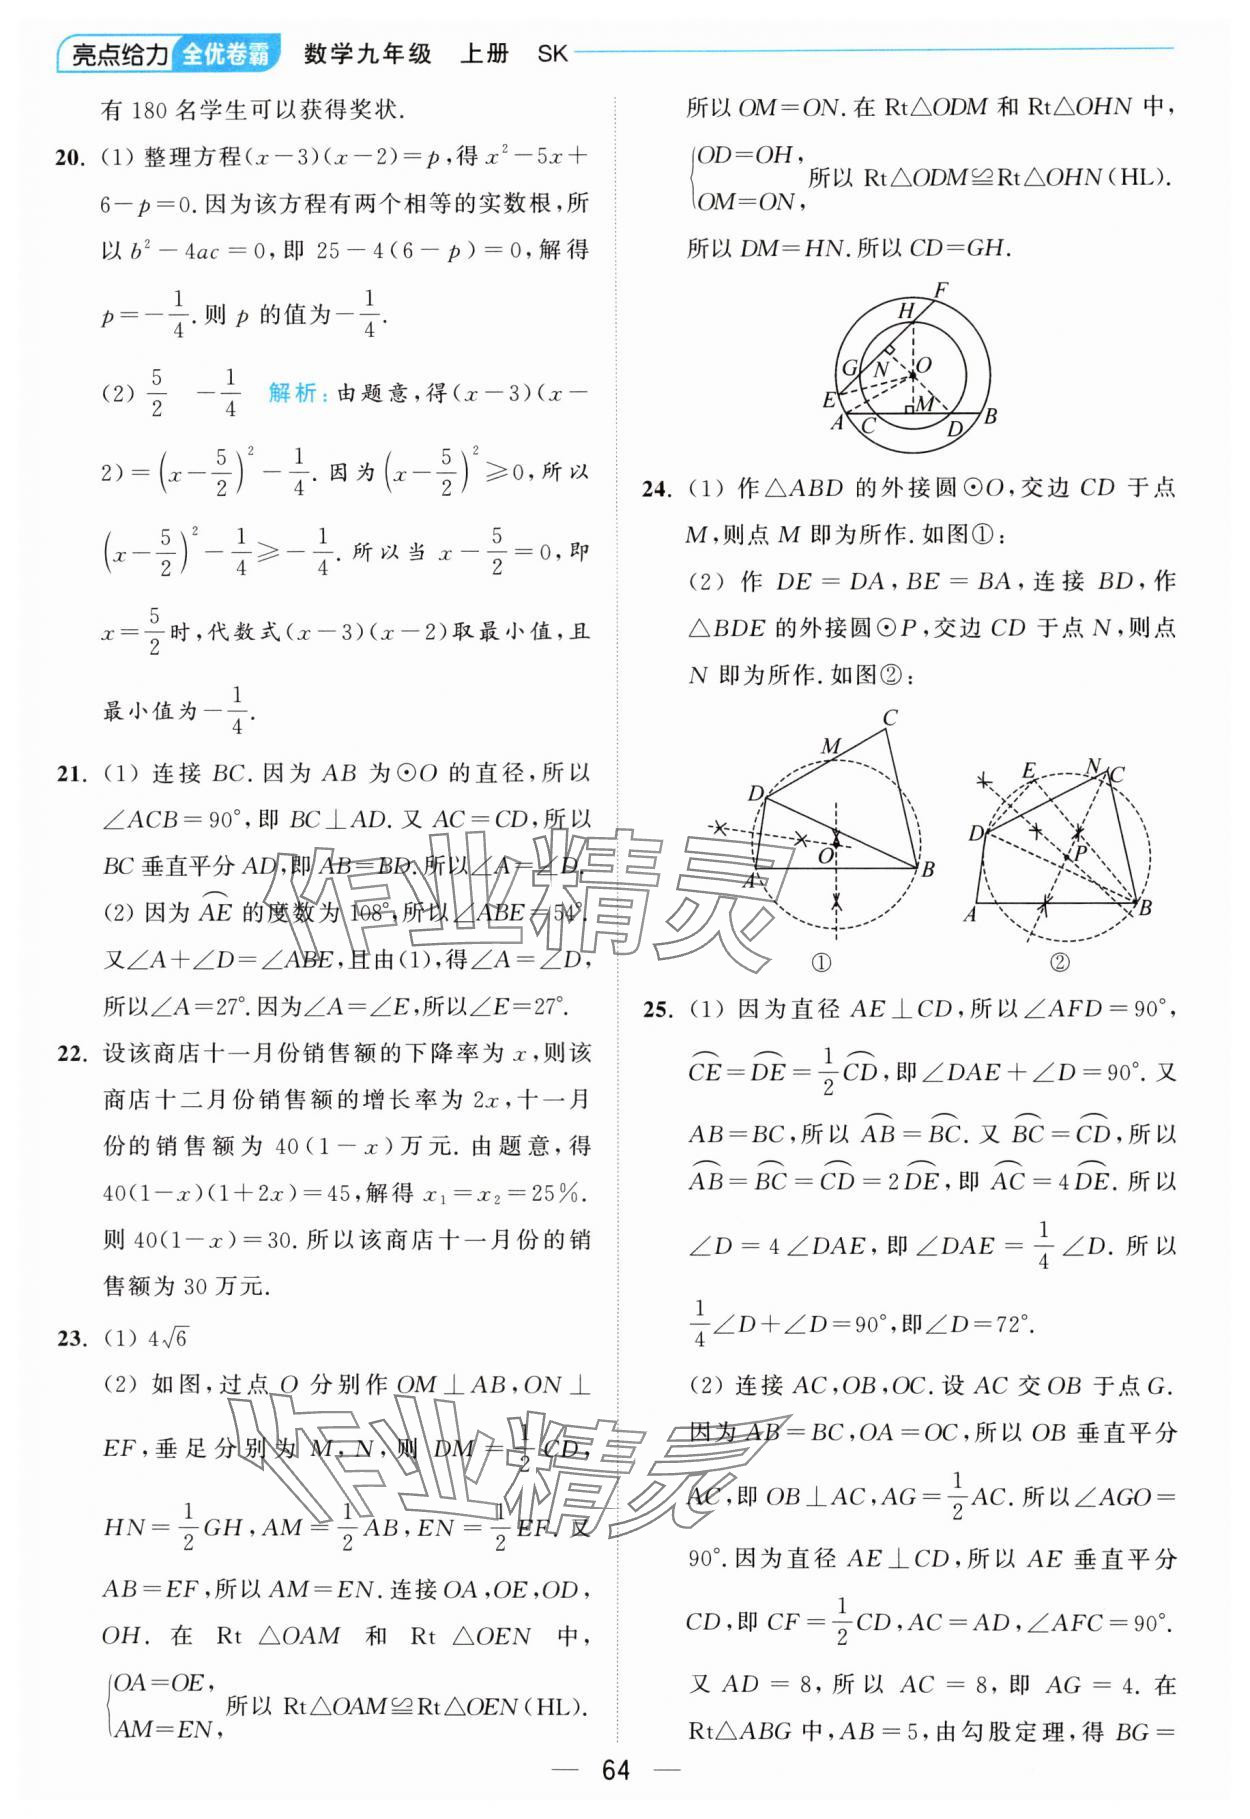 亮点给力 全优卷霸 数学九年级 上册 SK
有 180 名学生可以获得奖状.
20. (1) 整理方程(x－3)(x－2)＝p,得 x²－5x＋
6－p＝0.因为该方程有两个相等的实数根,所
以 b²－4ac＝0,即 25－4(6－p)＝0,解得
p＝－1/4.则 p 的值为－1/4.
(2) 5/2 －1/4 解析:由题意,得(x－3)(x－
2)＝(x－5/2)²－1/4.因为(x－5/2)²≥0,所以
(x－5/2)²－1/4≥－1/4.所以当 x－5/2＝0,即
x＝5/2时,代数式(x－3)(x－2)取最小值,且
最小值为－1/4.
21. (1) 连接 BC.因为 AB 为⊙O 的直径,所以
∠ACB＝90°,即 BC⊥AD.又 AC＝CD,所以
BC 垂直平分 AD,即 AB＝BD.所以∠A＝∠D.
(2) 因为 ⌒AE 的度数为 108°,所以∠ABE＝54°.
又∠A＋∠D＝∠ABE,且由(1),得∠A＝∠D,
所以∠A＝27°.因为∠A＝∠E,所以∠E＝27°.
22. 设该商店十一月份销售额的下降率为 x,则该
商店十二月份销售额的增长率为 2x,十一月
份的销售额为 40(1－x)万元.由题意,得
40(1－x)(1＋2x)＝45,解得 x₁＝x₂＝25%.
则 40(1－x)＝30.所以该商店十一月份的销
售额为 30 万元.
23. (1) 4√6
(2) 如图,过点 O 分别作 OM⊥AB,ON⊥
EF,垂足分别为 M,N,则 DM＝1/2CD,
HN＝1/2GH,AM＝1/2AB,EN＝1/2EF.又
AB＝EF,所以 AM＝EN.连接 OA,OE,OD,
OH.在 Rt△OAM 和 Rt△OEN 中,
{OA＝OE,
AM＝EN, 所以 Rt△OAM≌Rt△OEN(HL).
所以 OM＝ON.在 Rt△ODM 和 Rt△OHN 中,
{OD＝OH,
OM＝ON, 所以 Rt△ODM≌Rt△OHN(HL).
所以 DM＝HN.所以 CD＝GH.
F
H
G
N
O
E
M
A
C
D
B
24. (1) 作△ABD 的外接圆⊙O,交边 CD 于点
M,则点 M 即为所作.如图①:
(2) 作 DE＝DA,BE＝BA,连接 BD,作
△BDE 的外接圆⊙P,交边 CD 于点 N,则点
N 即为所作.如图②:
C
M
D
O
A
B
①
E
N
C
D
P
A
B
②
25. (1) 因为直径 AE⊥CD,所以∠AFD＝90°,
⌒CE＝⌒DE＝1/2⌒CD,即∠DAE＋∠D＝90°.又
AB＝BC,所以 ⌒AB＝⌒BC.又 ⌒BC＝⌒CD,所以
⌒AB＝⌒BC＝⌒CD＝2⌒DE,即 ⌒AC＝4⌒DE.所以
∠D＝4∠DAE,即∠DAE＝1/4∠D.所以
1/4∠D＋∠D＝90°,即∠D＝72°.
(2) 连接 AC,OB,OC.设 AC 交 OB 于点 G.
因为 AB＝BC,OA＝OC,所以 OB 垂直平分
AC,即 OB⊥AC,AG＝1/2AC.所以∠AGO＝
90°.因为直径 AE⊥CD,所以 AE 垂直平分
CD,即 CF＝1/2CD,AC＝AD,∠AFC＝90°.
又 AD＝8,所以 AC＝8,即 AG＝4.在
Rt△ABG 中,AB＝5,由勾股定理,得 BG＝
— 64 —
作业精灵
作业精灵